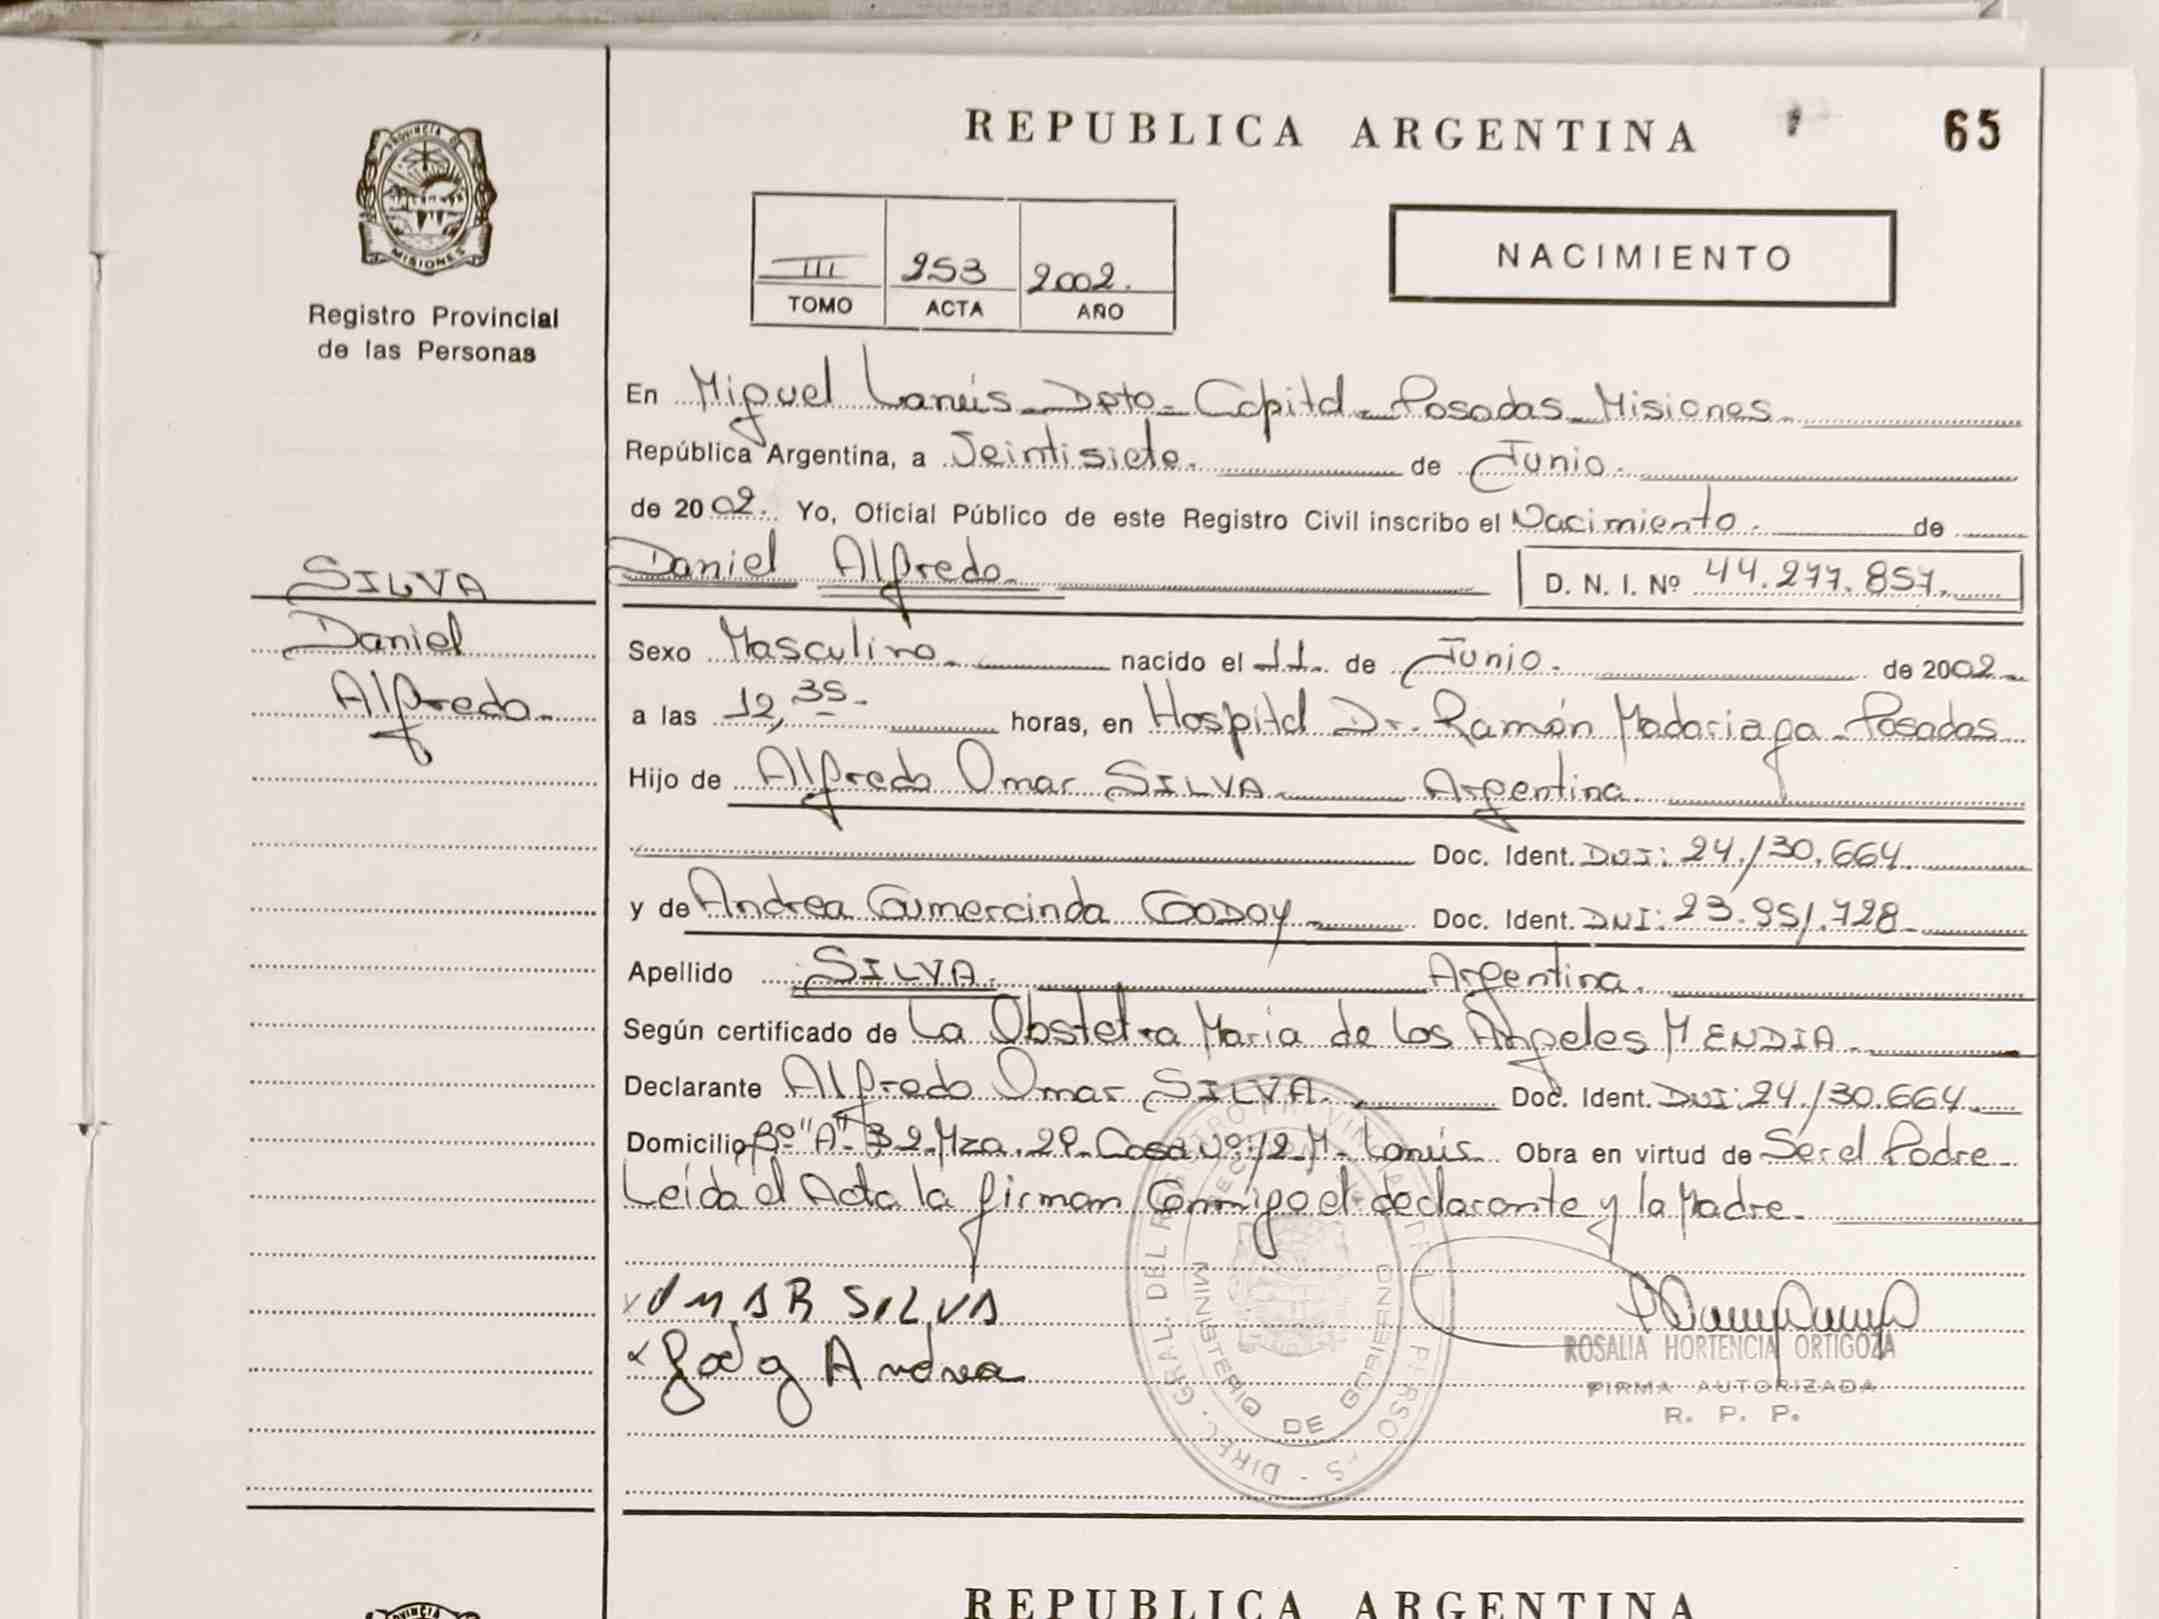 REPUBLICA ARGENTINA
65
PROVINCIA DE
MISIONES
Registro Provincial
de las Personas
III 253 2002.
TOMO ACTA AÑO
NACIMIENTO
En Miguel Lanús - Dpto - Capital - Posadas - Misiones.
República Argentina, a Veintisiete. de Junio.
de 2002. Yo, Oficial Público de este Registro Civil inscribo el Nacimiento. de
Daniel Alfredo. D. N. I. Nº 44.277.857.
SILVA
Daniel
Alfredo.
Sexo Masculino. nacido el 11. de Junio. de 2002.
a las 12,35. horas, en Hospital Dr. Ramón Madariaga - Posadas
Hijo de Alfredo Omar SILVA. Argentina.
Doc. Ident. DNI: 24.130.664.
y de Andrea Gumercinda GODOY. Doc. Ident. DNI: 23.951.728.
Apellido SILVA. Argentina.
Según certificado de La Obstetra Maria de Los Angeles MENDIA.
Declarante Alfredo Omar SILVA. Doc. Ident. DNI: 24.130.664.
Domicilio Bº "A" 3 2. Mza. 29. Casa Nº: 12 M. Lanús. Obra en virtud de Ser el Padre.
Leída el Acta la firman Conmigo el declarante y la Madre.
OMAR SILVA
Andrea
ROSALIA HORTENCIA ORTIGOZA
FIRMA AUTORIZADA
R. P. P.
MINISTERIO DE GOBIERNO
REPUBLICA ARGENTINA